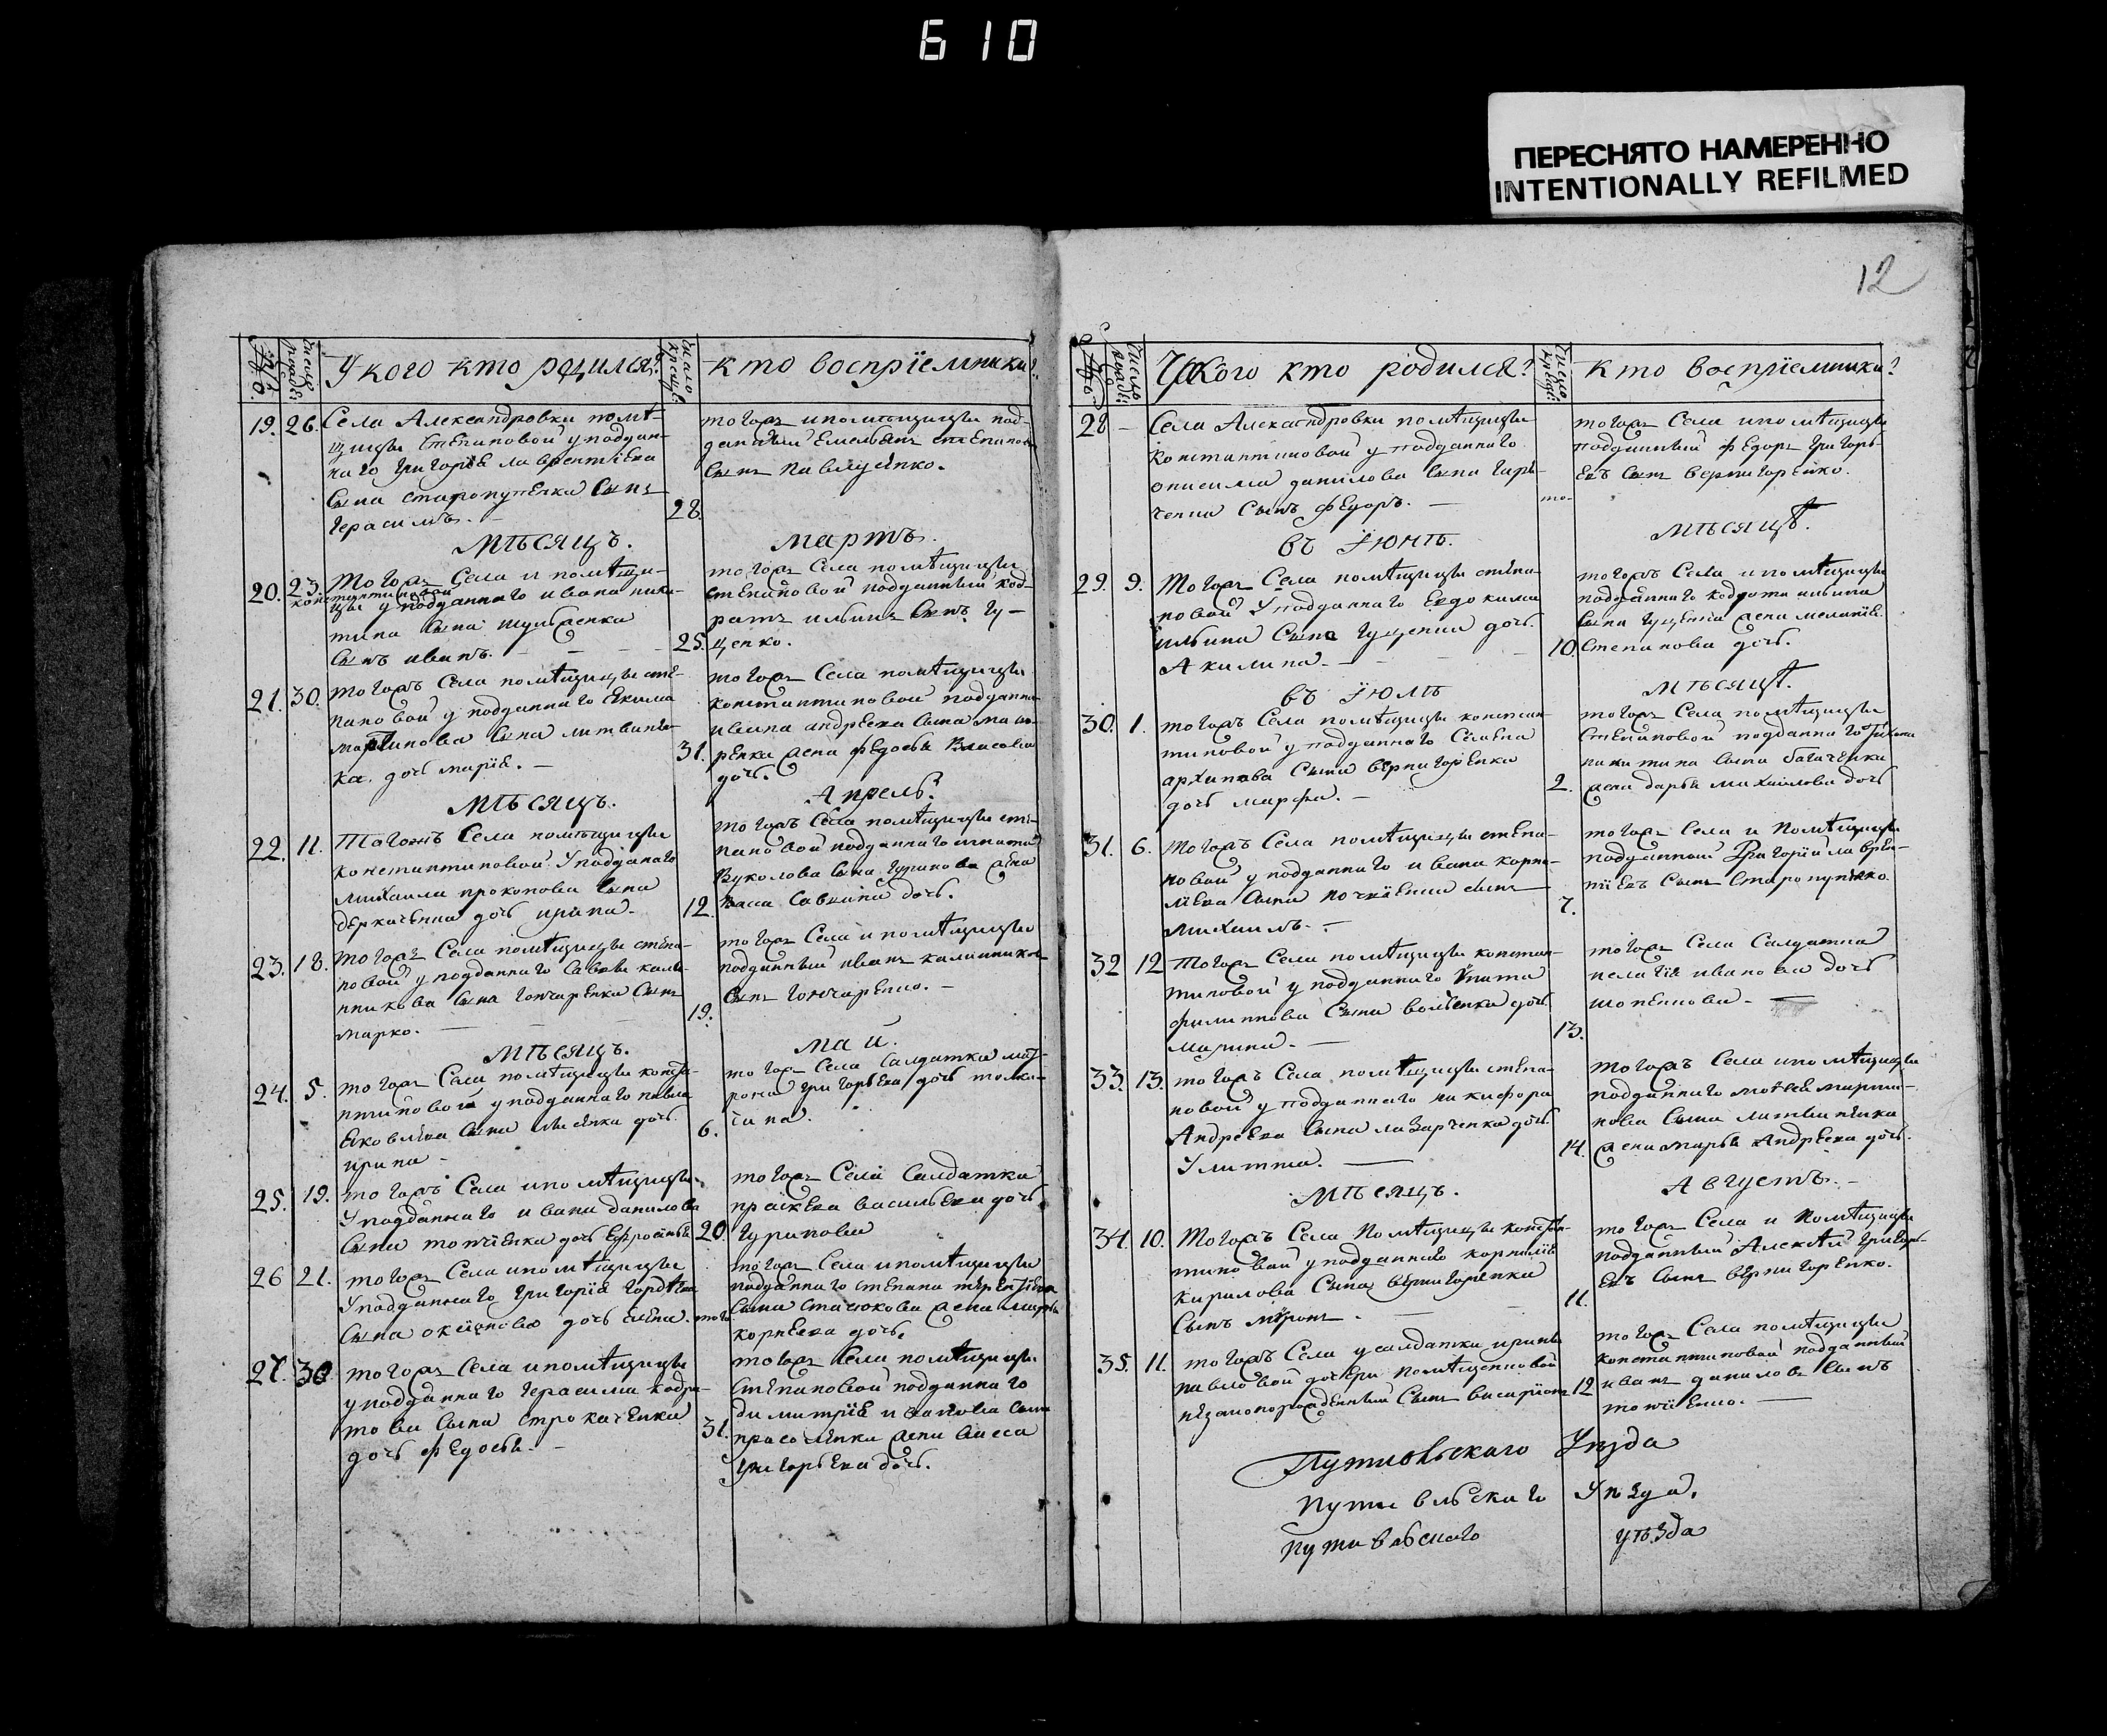 610
ПЕРЕСНЯТО НАМЕРЕННО
INTENTIONALLY REFILMED
12
У кого кто родился?
кто воспрїемники?
19. 26. Села Александровки помѣ-
щицы Степановой у поддан-
наго Григорїя лаврентїева
сына старопутенка сынъ
Герасимъ. 28.
тогожъ ипомѣщицы под-
данный Емельянъ степановъ
сынъ павлусенко.
мѣсяцъ.
мартъ.
20. 23. Тогожъ Села и помѣщи-
константиновой
цы у подданнаго ивана ники-
тина сына
сынъ иванъ. 25.
тогожъ Села помѣщицы
степановой подданный код-
ратъ ильинъ сынъ гу-
ценко.
21. 30. тогожъ Села помѣщицы сте-
пановой у подданнаго Екима
мартинова сына литвинен-
ка дочь марїя. 31.
тогожъ Села помѣщицы
константиновой подданна
ивана андреева сына
жена федосья власова
дочь.
мѣсяцъ.
Апрель.
22. 11. Тогожъ Села помѣщицы
константиновой у подданаго
михаила прокопова сына
деркаченка дочь ирина. 12.
тогожъ Села помѣщицы сте-
пановой подданнаго игната
Вуколова сына гуринова жена
васса савкина дочь.
23. 18. тогожъ Села помѣщицы степа-
новой у подданнаго савы кали-
никова сына гончаренка сынъ
марко. 19.
тогожъ Села и помѣщицы
подданный иванъ калинниковъ
сынъ гончаренко.
мѣсяцъ.
май.
24. 5. тогожъ Села помѣщицы конста-
нтиновой у подданнаго павла
яковлева сына дочь
ирина 6.
тогожъ Села салдатка мат-
рона григорьева дочь
25. 19. тогожъ Села ипомѣщицы
у подданнаго ивана данилова
сына топчїенка дочь Ефросинья 20.
тогожъ Села салдатка
праскева васильева дочь
гуринова
26 21. тогожъ Села ипомѣщицы
у подданнаго григорїя гордѣева
сына дочь елена. тогожъ
тогожъ Села ипомѣщицы
подданнаго степана терентїева
сына стасюкова жена марфа
корнеева дочь
27. 30 тогожъ Села ипомѣщицы
у подданнаго герасима кодра-
това сына строкаченка
дочь федосья. 31.
тогожъ Села помѣщицы
степановой подданнаго
димитрїя иванова сына
прасоленка жена васса
григорьева дочь.
У кого кто родился?
кто воспрїемники?
28 Села Александровки помѣщицы
константиновой у подданнаго
онисима данилова сына гор-
сынъ федоръ. то-
тогожъ Села ипомѣщицы
подданный федоръ григорь-
евъ сынъ вернигоренко.
въ Їюнѣ.
мѣсяцѣ.
29. 9. Тогожъ Села помѣщицы степа-
новой у подданнаго Евдокима
ильина сына гуценка дочь
Акилина. 10.
тогожъ Села и помѣщицы
подданнаго кодрата ильина
сына гуценка жена меланїя
степанова дочь.
въ Їюлѣ
мѣсяцѣ.
30. 1. тогожъ Села помѣщицы констан-
тиновой у подданнаго Семена
архипова сына вернигоренка
дочь марфа. 2.
тогожъ Села помѣщицы
степановой подданнаго
никитина сына богаченка
жена дарья михайлова дочь
31. 6. тогожъ Села помѣщицы степа-
новой у подданнаго ивана корни-
лева сына сынъ
михаилъ. 7.
тогожъ Села и помѣщицы
подданный Григорїй лаврен-
тїевъ сынъ старопутенко.
32 12 Тогожъ Села помѣщицы констан-
тиновой у подданнаго игната
филиппова сына дочь
марина. 13.
тогожъ Села Салдатка
пелагїя иванова дочь
33. 13. тогожъ Села помѣщицы степа-
новой у подданнаго никифора
Андреева сына лазарченка дочь
Улитта. 14.
тогожъ Села ипомѣщицы
подданнаго мойсея марти-
нова сына литвиненка
жена марья андреева дочь.
мѣсяцъ.
Августъ.
34. 10. Тогожъ Села Помѣщицы констан-
тиновой у подданнаго корнилїя
кирилова сына вернигоренка
сынъ миронъ. 11.
тогожъ Села и Помѣщицы
подданный Алексѣй григорь-
евъ сынъ вернигоренко.
35. 11. тогожъ Села у салдатки ирины
павловой дочери
незаконорожденный сынъ висарїонъ 12
тогожъ Села помѣщицы
константиновой подданный
иванъ даниловъ сынъ
топчїенко.
Путивльскаго Уѣзда
путивльскаго Уѣзда.
путивльскаго уѣзда